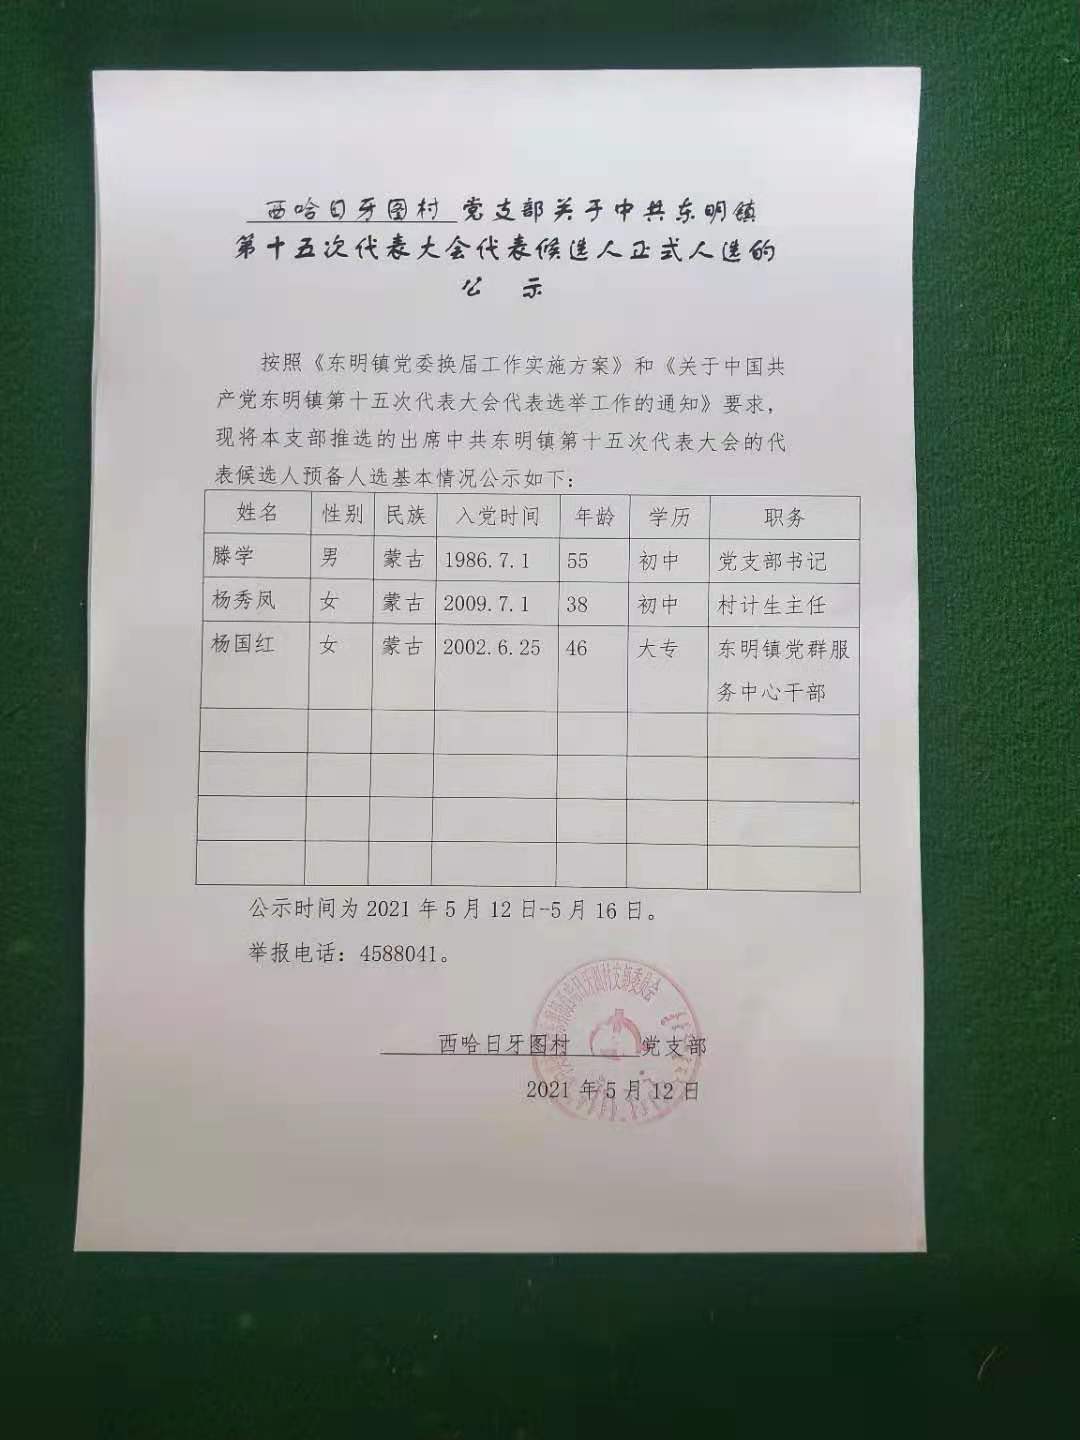 西哈日牙图村 党支部关于中共东明镇
第十五次代表大会代表候选人正式人选的
公 示
按照《东明镇党委换届工作实施方案》和《关于中国共
产党东明镇第十五次代表大会代表选举工作的通知》要求，
现将本支部推选的出席中共东明镇第十五次代表大会的代
表候选人预备人选基本情况公示如下：
姓名 性别 民族 入党时间 年龄 学历 职务
滕学 男 蒙古 1986.7.1 55 初中 党支部书记
杨秀凤 女 蒙古 2009.7.1 38 初中 村计生主任
杨国红 女 蒙古 2002.6.25 46 大专 东明镇党群服
务中心干部
公示时间为 2021 年 5 月 12 日-5 月 16 日。
举报电话：4588041。
西哈日牙图村 党支部
2021 年 5 月 12 日